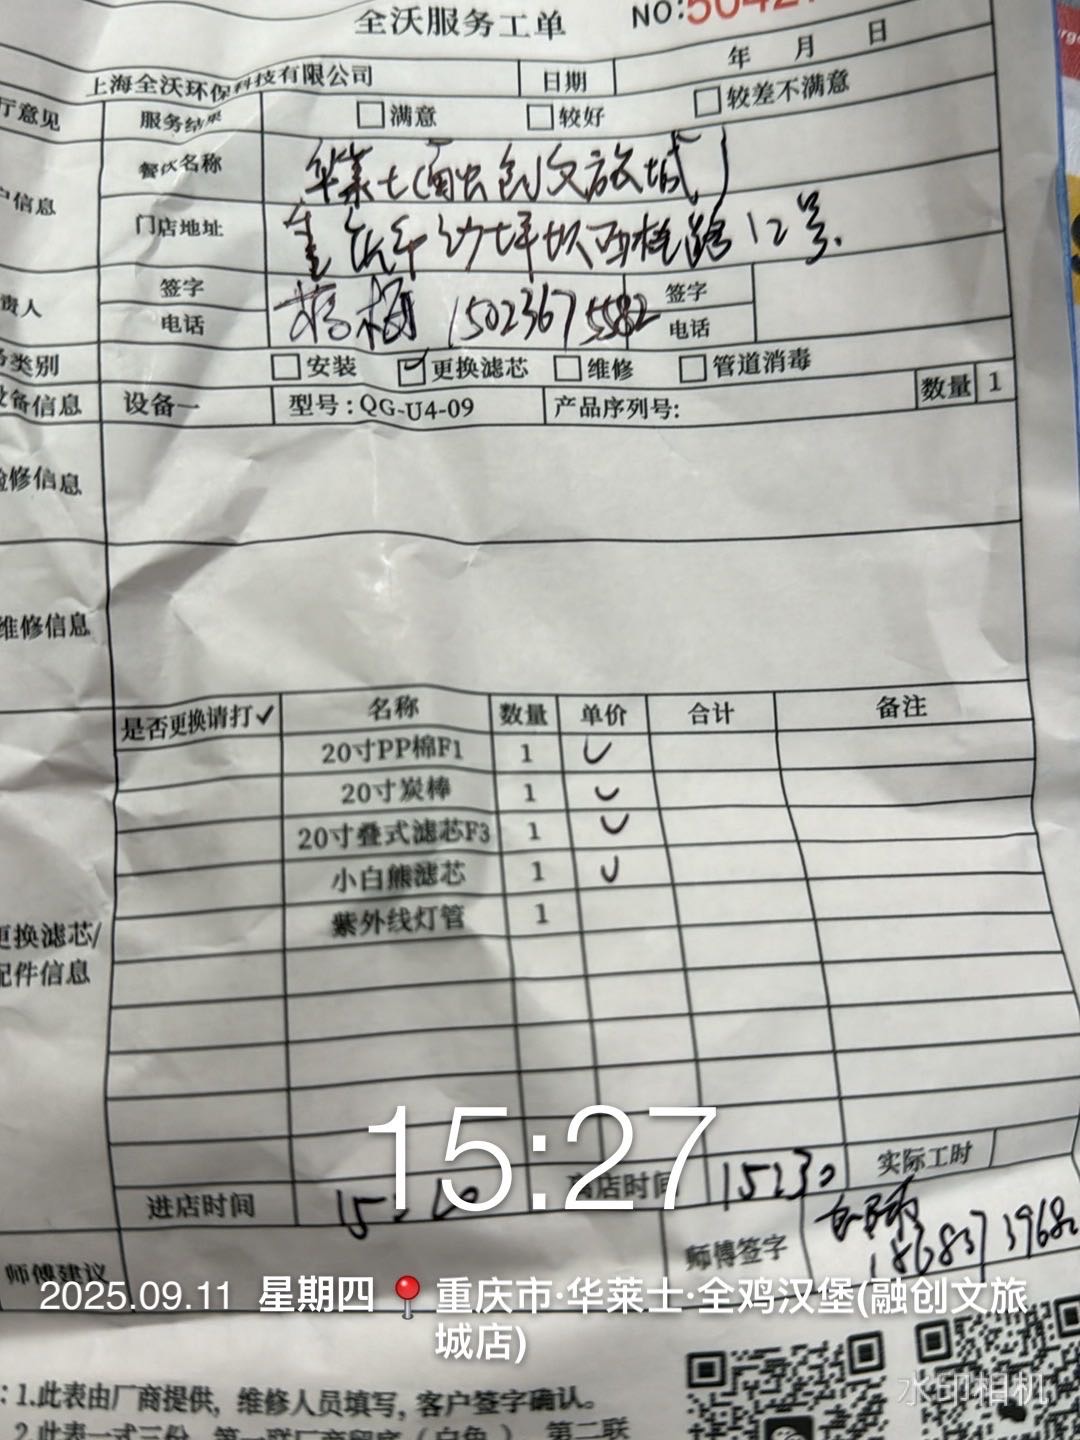 全沃服务工单
NO:50427
年 月 日
上海全沃环保科技有限公司 日期
厅意见 服务结果 满意 较好 较差不满意
户信息 餐饮名称 华莱士(融创文旅城)
门店地址 重庆市沙坪坝西桂路12号.
责人 签字 杨梅 签字
电话 15023675582 电话
务类别 安装 ✓更换滤芯 维修 管道消毒
设备信息 设备一 型号:QG-U4-09 产品序列号: 数量 1
检修信息
维修信息
是否更换请打✓ 名称 数量 单价 合计 备注
20寸PP棉F1 1 ✓
20寸炭棒 1 ✓
20寸叠式滤芯F3 1 ✓
小白熊滤芯 1 ✓
紫外线灯管 1
更换滤芯/
配件信息
15:27
进店时间 离店时间 15:30 实际工时
师傅建议 师傅签字
2025.09.11 星期四 📍重庆市·华莱士·全鸡汉堡(融创文旅
城店)
:1.此表由厂商提供,维修人员填写,客户签字确认。
水印相机
2.此表一式三份,第一联厂商留底(白色),第二联